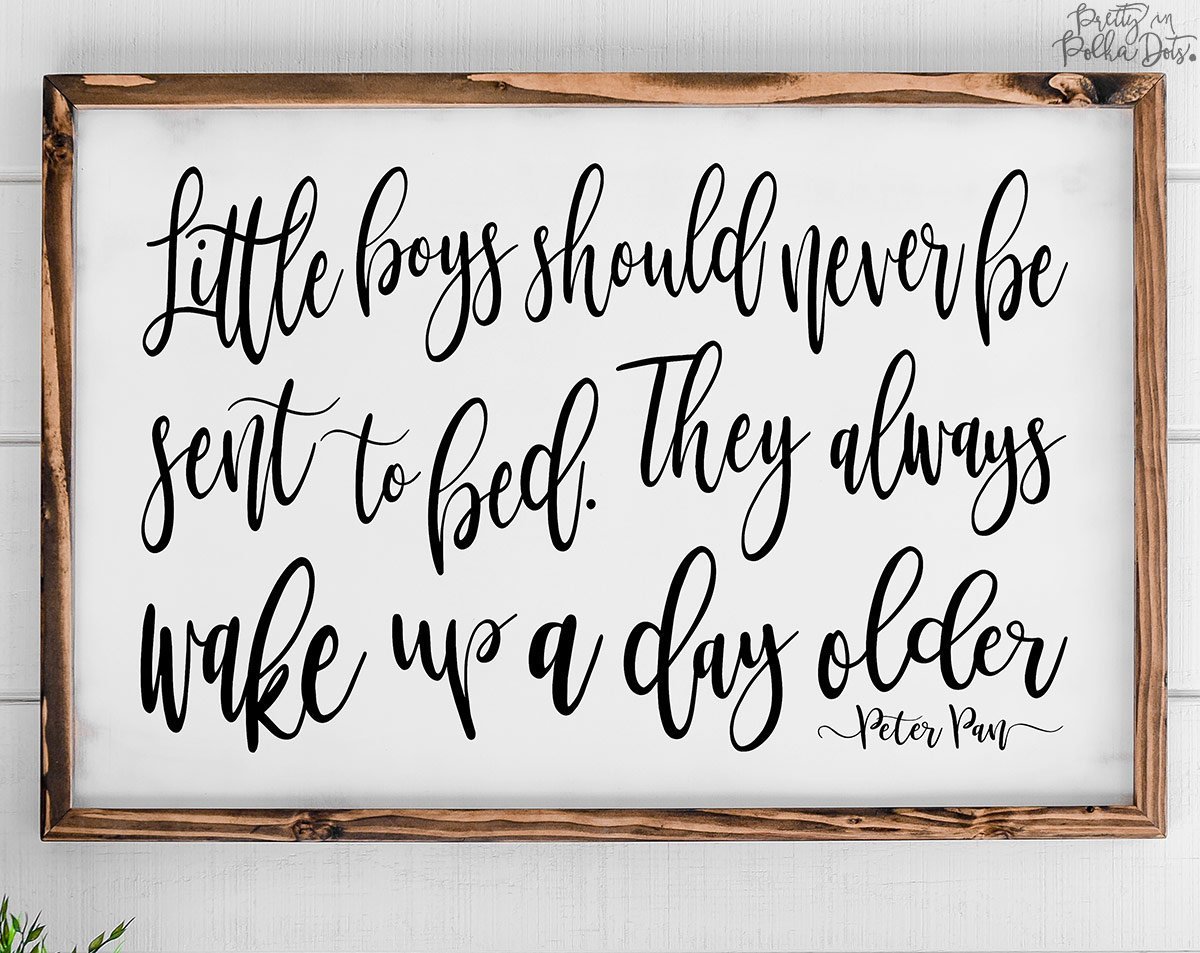 Pretty in
Polka Dots.
Little boys should never be
sent to bed. They always
wake up a day older
Peter Pan